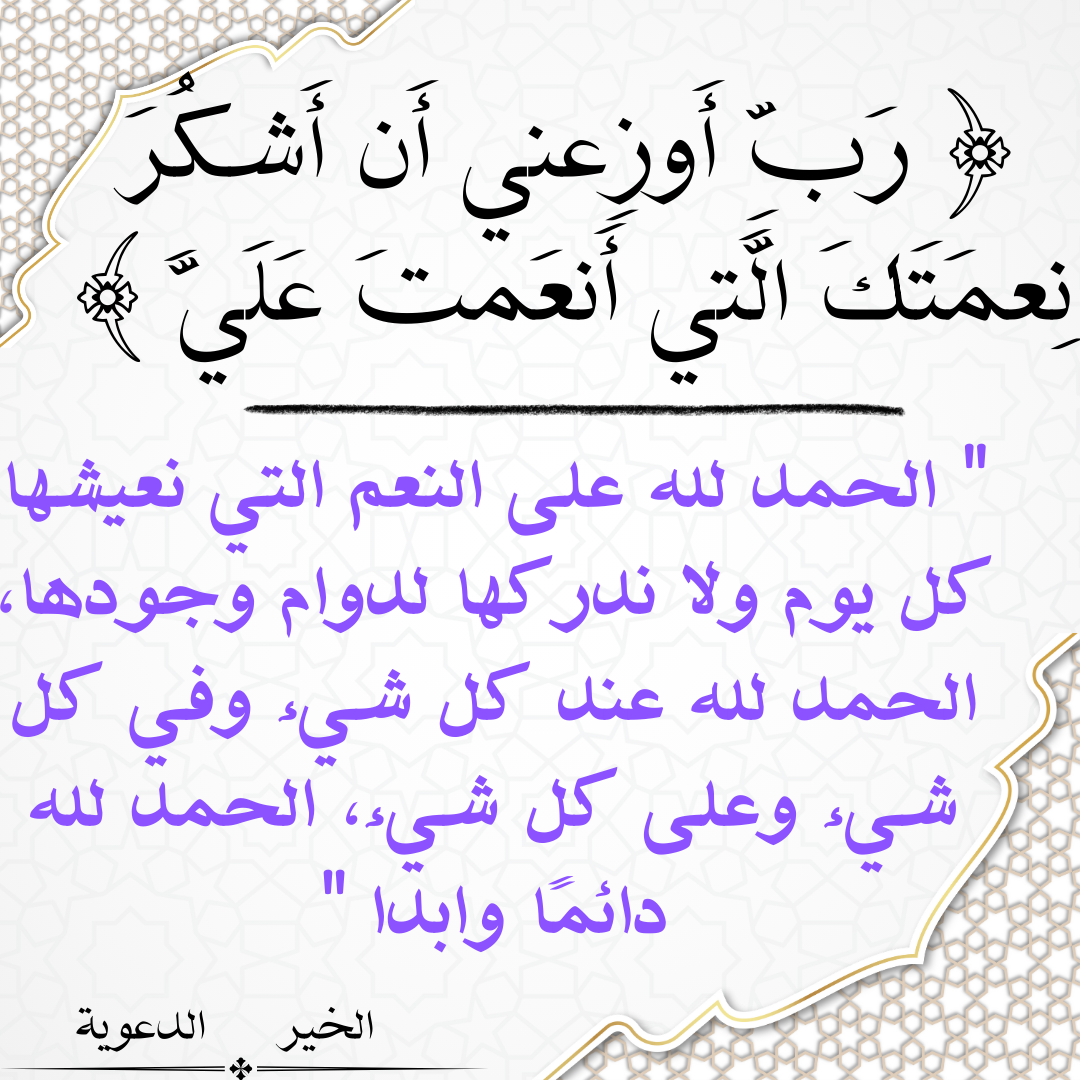 ﴿ رَبّ أَوزِعني أَن أَشكُرَ
نِعمَتَكَ الَّتي أَنعَمتَ عَلَيَّ ﴾
" الحمد لله على النعم التي نعيشها
كل يوم ولا ندركها لدوام وجودها،
الحمد لله عند كل شيء وفي كل
شيء وعلى كل شيء، الحمد لله
دائمًا وابدا "
الخير الدعوية